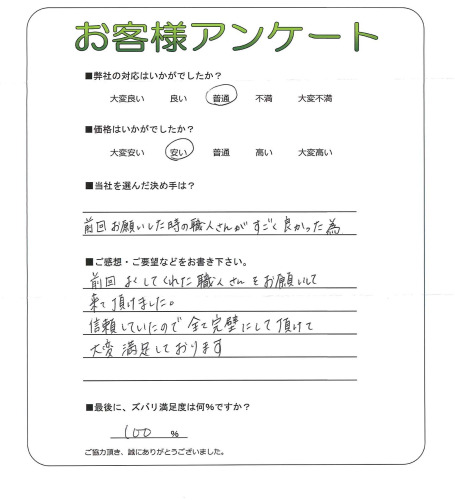 お客様アンケート
■弊社の対応はいかがでしたか?
大変良い 良い 普通 不満 大変不満
■価格はいかがでしたか?
大変安い 安い 普通 高い 大変高い
■当社を選んだ決め手は?
前回お願いした時の職人さんがすごく良かった為
■ご感想・ご要望などをお書き下さい。
前回よくしてくれた職人さんをお願いして
来て頂けました。
信頼していたので全て完璧にして頂けて
大変満足しております
■最後に、ズバリ満足度は何%ですか?
100 %
ご協力頂き、誠にありがとうございました。